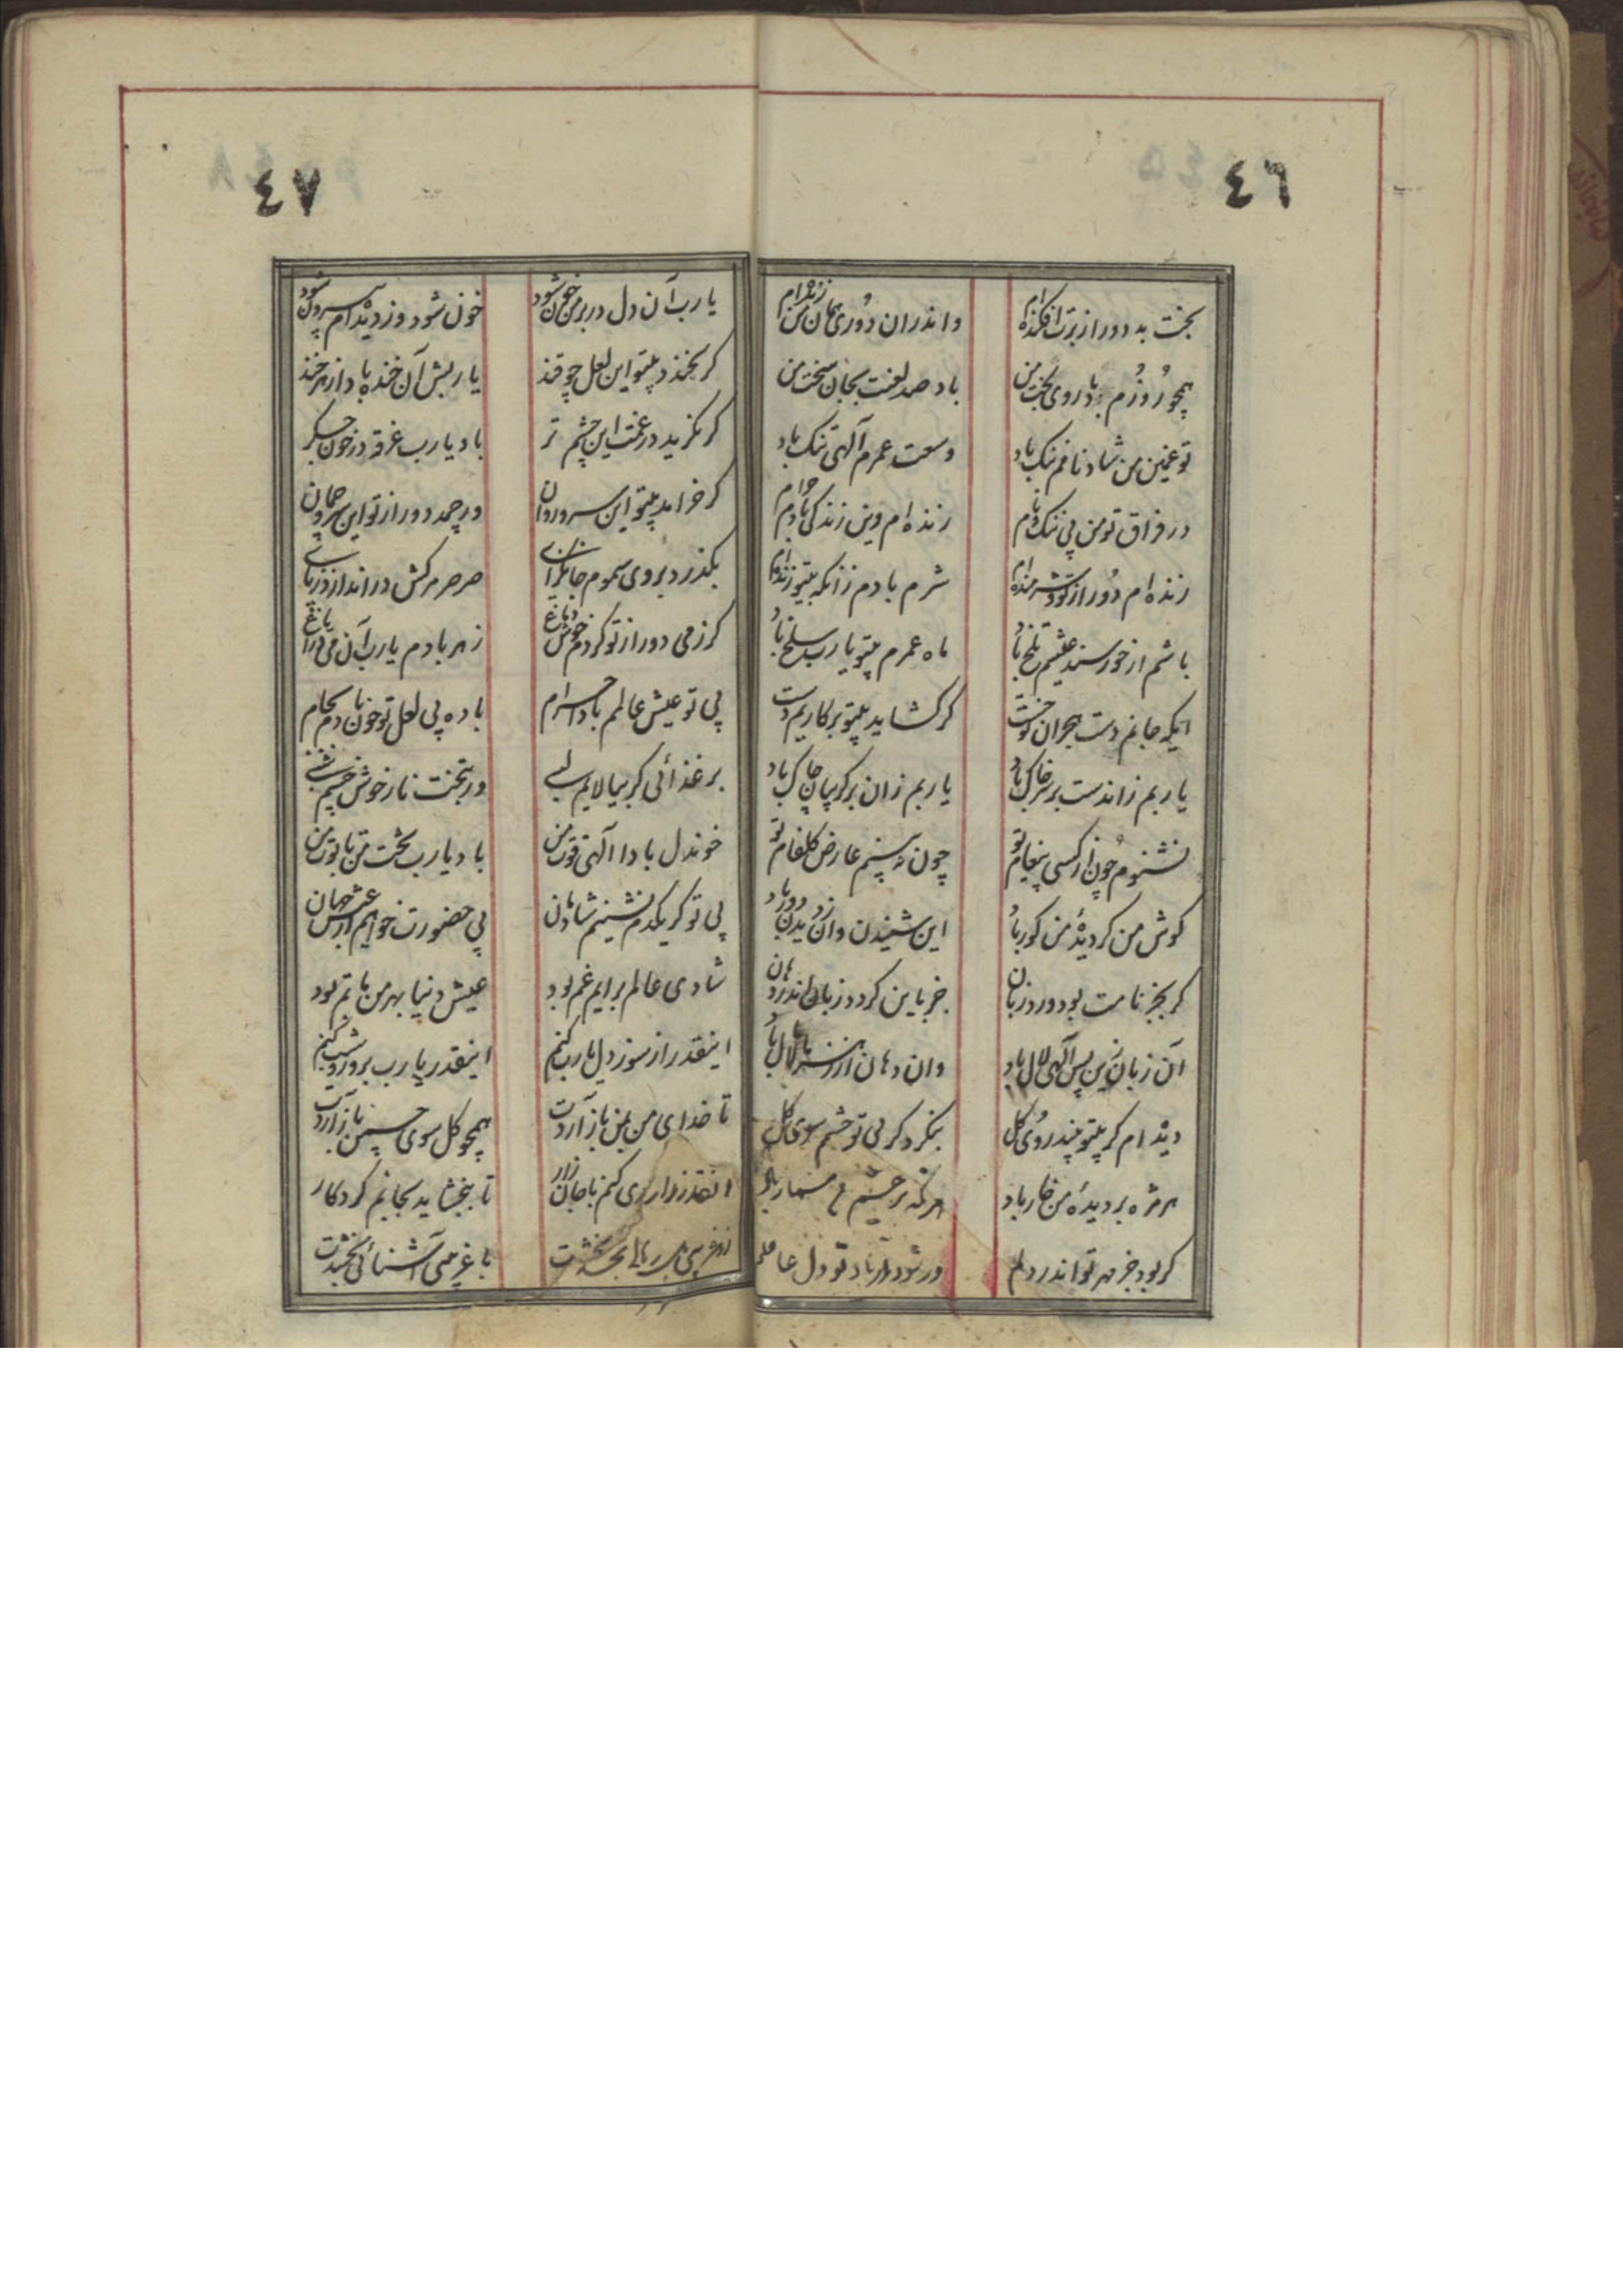 ٤٦
بخت بد دور از برت افکنده‌ام
واندران دوری همان من زنده‌ام
همچو روزم باد روی بخت من
باد صد لعنت بجان سخت من
تو غمین من شاد نامم ننک باد
وسعت عمرم آلهی تنک باد
در فراق تو من بی ننک و نام
زنده‌ام وین زندکی بادم حرام
زنده‌ام دور از تو و شرمنده‌ام
شرم بادم زانکه بیتو زنده‌ام
باشم ار خورسند عیشم تلخ باد
ماه عمرم بیتو یا رب سلخ باد
ایکه جانم دست هجران تو خست
کر کشاید بیتو بر کاریم دست
یا ربم زاندست بر سر خاک باد
یا ربم زان بر کریبان چاک باد
نشنوم چون از کسی پیغام تو
چون نه بینم عارض کلفام تو
کوش من کر دیدهٔ من کور باد
این شنیدن وان زدیدن دور باد
کر بجز نامت بود ورد زبان
جز باین کردد زبان اندر دهان
آن زبان زین پس آلهی لال باد
وان دهان از
دیده‌ام کر بیتو بیند روی کل
بنکرد کر بی تو چشم سوی کل
هر مژه بر دیدهٔ من خار باد
هر نکه بر چشم من مسمار باد
کر بود جز مهر تو اندر دلم
ور شود از یاد تو دل غافلم
٤٧
یا رب آن دل در بر من خون شود
خون شود وز دیده‌ام بیرون شود
کر بخندد بیتو این لعل چو قند
یا ربش آن خنده باد از زهر خند
کر نکرید در غمت این چشم تر
باد یا رب غرقه در خون جکر
کر خرامد بیتو این سرو روان
ور چمد دور از تو این سرو چمان
بکذرد بر وی سموم جانکزای
صرصر مرکش در اندازد ز پای
کر ز می دور از تو کردم خوش دماغ
زهر بادم یا رب آن می در ایاغ
بی تو عیش عالم بادا حرام
باده بی لعل تو خون بادم بکام
بر غذائی کر بیالایم لبی
ور بتخت ناز خوش خسبم شبی
خوندل بادا آلهی قوت من
باد یا رب تخت من تابوت من
بی تو کر یکدم نشینم شادمان
بی حضورت خواهم ار عیش جهان
شادی عالم برایم غم بود
عیش دنیا بهر من ماتم بود
اینقدر از سوز دل یارب کنم
اینقدر یا رب بروز و شب کنم
تا خدای من بمن باز آردت
همچو کل سوی چمن باز آردت
انقدر زاری کنم با جان زار
تا ببخشاید بجانم کردکار
با غریبی آشنائی بخشدت